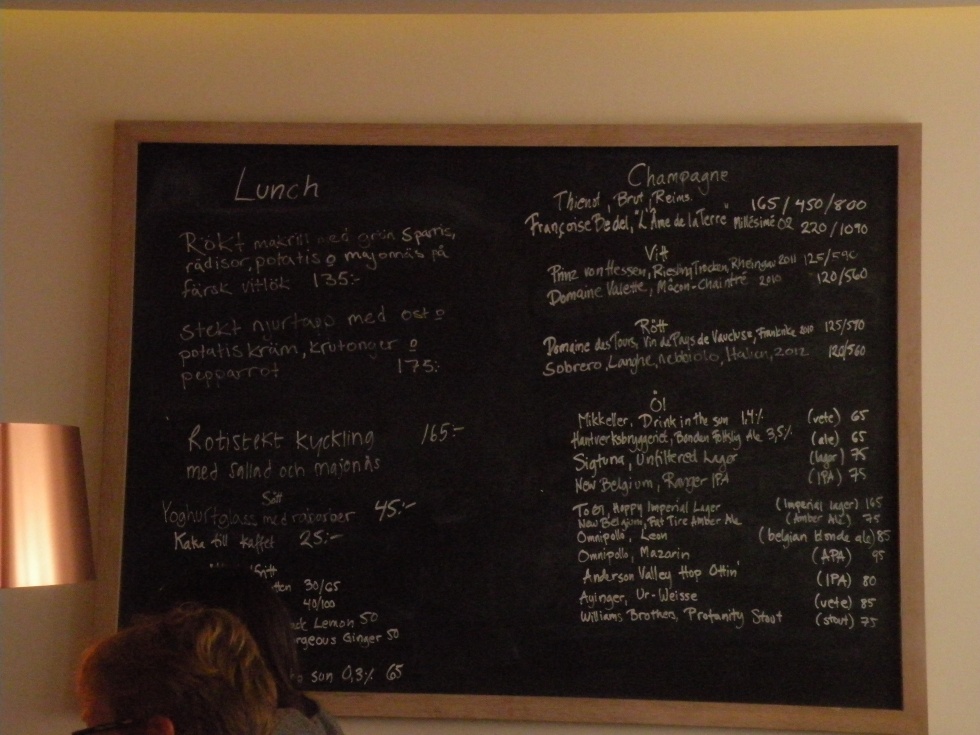 Lunch
Rökt makrill med grön sparris,
rädisor, potatis o majonnäs på
färsk vitlök 135:-
Stekt njurtapp med ost o
potatiskräm, krutonger o
pepparrot 175:-
Rotistekt kyckling 165:-
med sallad och majonäs
Sött
Yoghurtglass med rabarber 45:-
Kaka till kaffet 25:-
30/65
40/100
Lemon 50
Ginger 50
sun 0,3% 65
Champagne
Thienot, Brut, Reims. 165/450/800
Françoise Bedel, "L'Âme de la Terre" Millésimé 02 220/1090
Vitt
Prinz von Hessen, Riesling Trocken, Rheingau 2011 125/590
Domaine Valette, Mâcon-Chaintré 2010 120/560
Rött
Domaine des Tours, Vin de Pays de Vaucluse, Frankrike 2010 125/590
Sobrero, Langhe, nebbiolo, Italien, 2012 120/560
Öl
Mikkeller, Drink in the sun 1,4% (vete) 65
Hantverksbryggeriet, Bonden Folklig Ale 3,5% (ale) 65
Sigtuna, Unfiltered Lager (lager) 75
New Belgium, Ranger IPA (IPA) 75
Toën, Hoppy Imperial Lager (Imperial lager) 165
New Belgium, Fat Tire Amber Ale (Amber Ale) 75
Omnipollo, Leon (belgian blonde ale) 85
Omnipollo, Mazarin (APA) 95
Anderson Valley Hop Ottin' (IPA) 80
Ayinger, Ur-Weisse (vete) 85
Williams Brothers, Profanity Stout (stout) 75